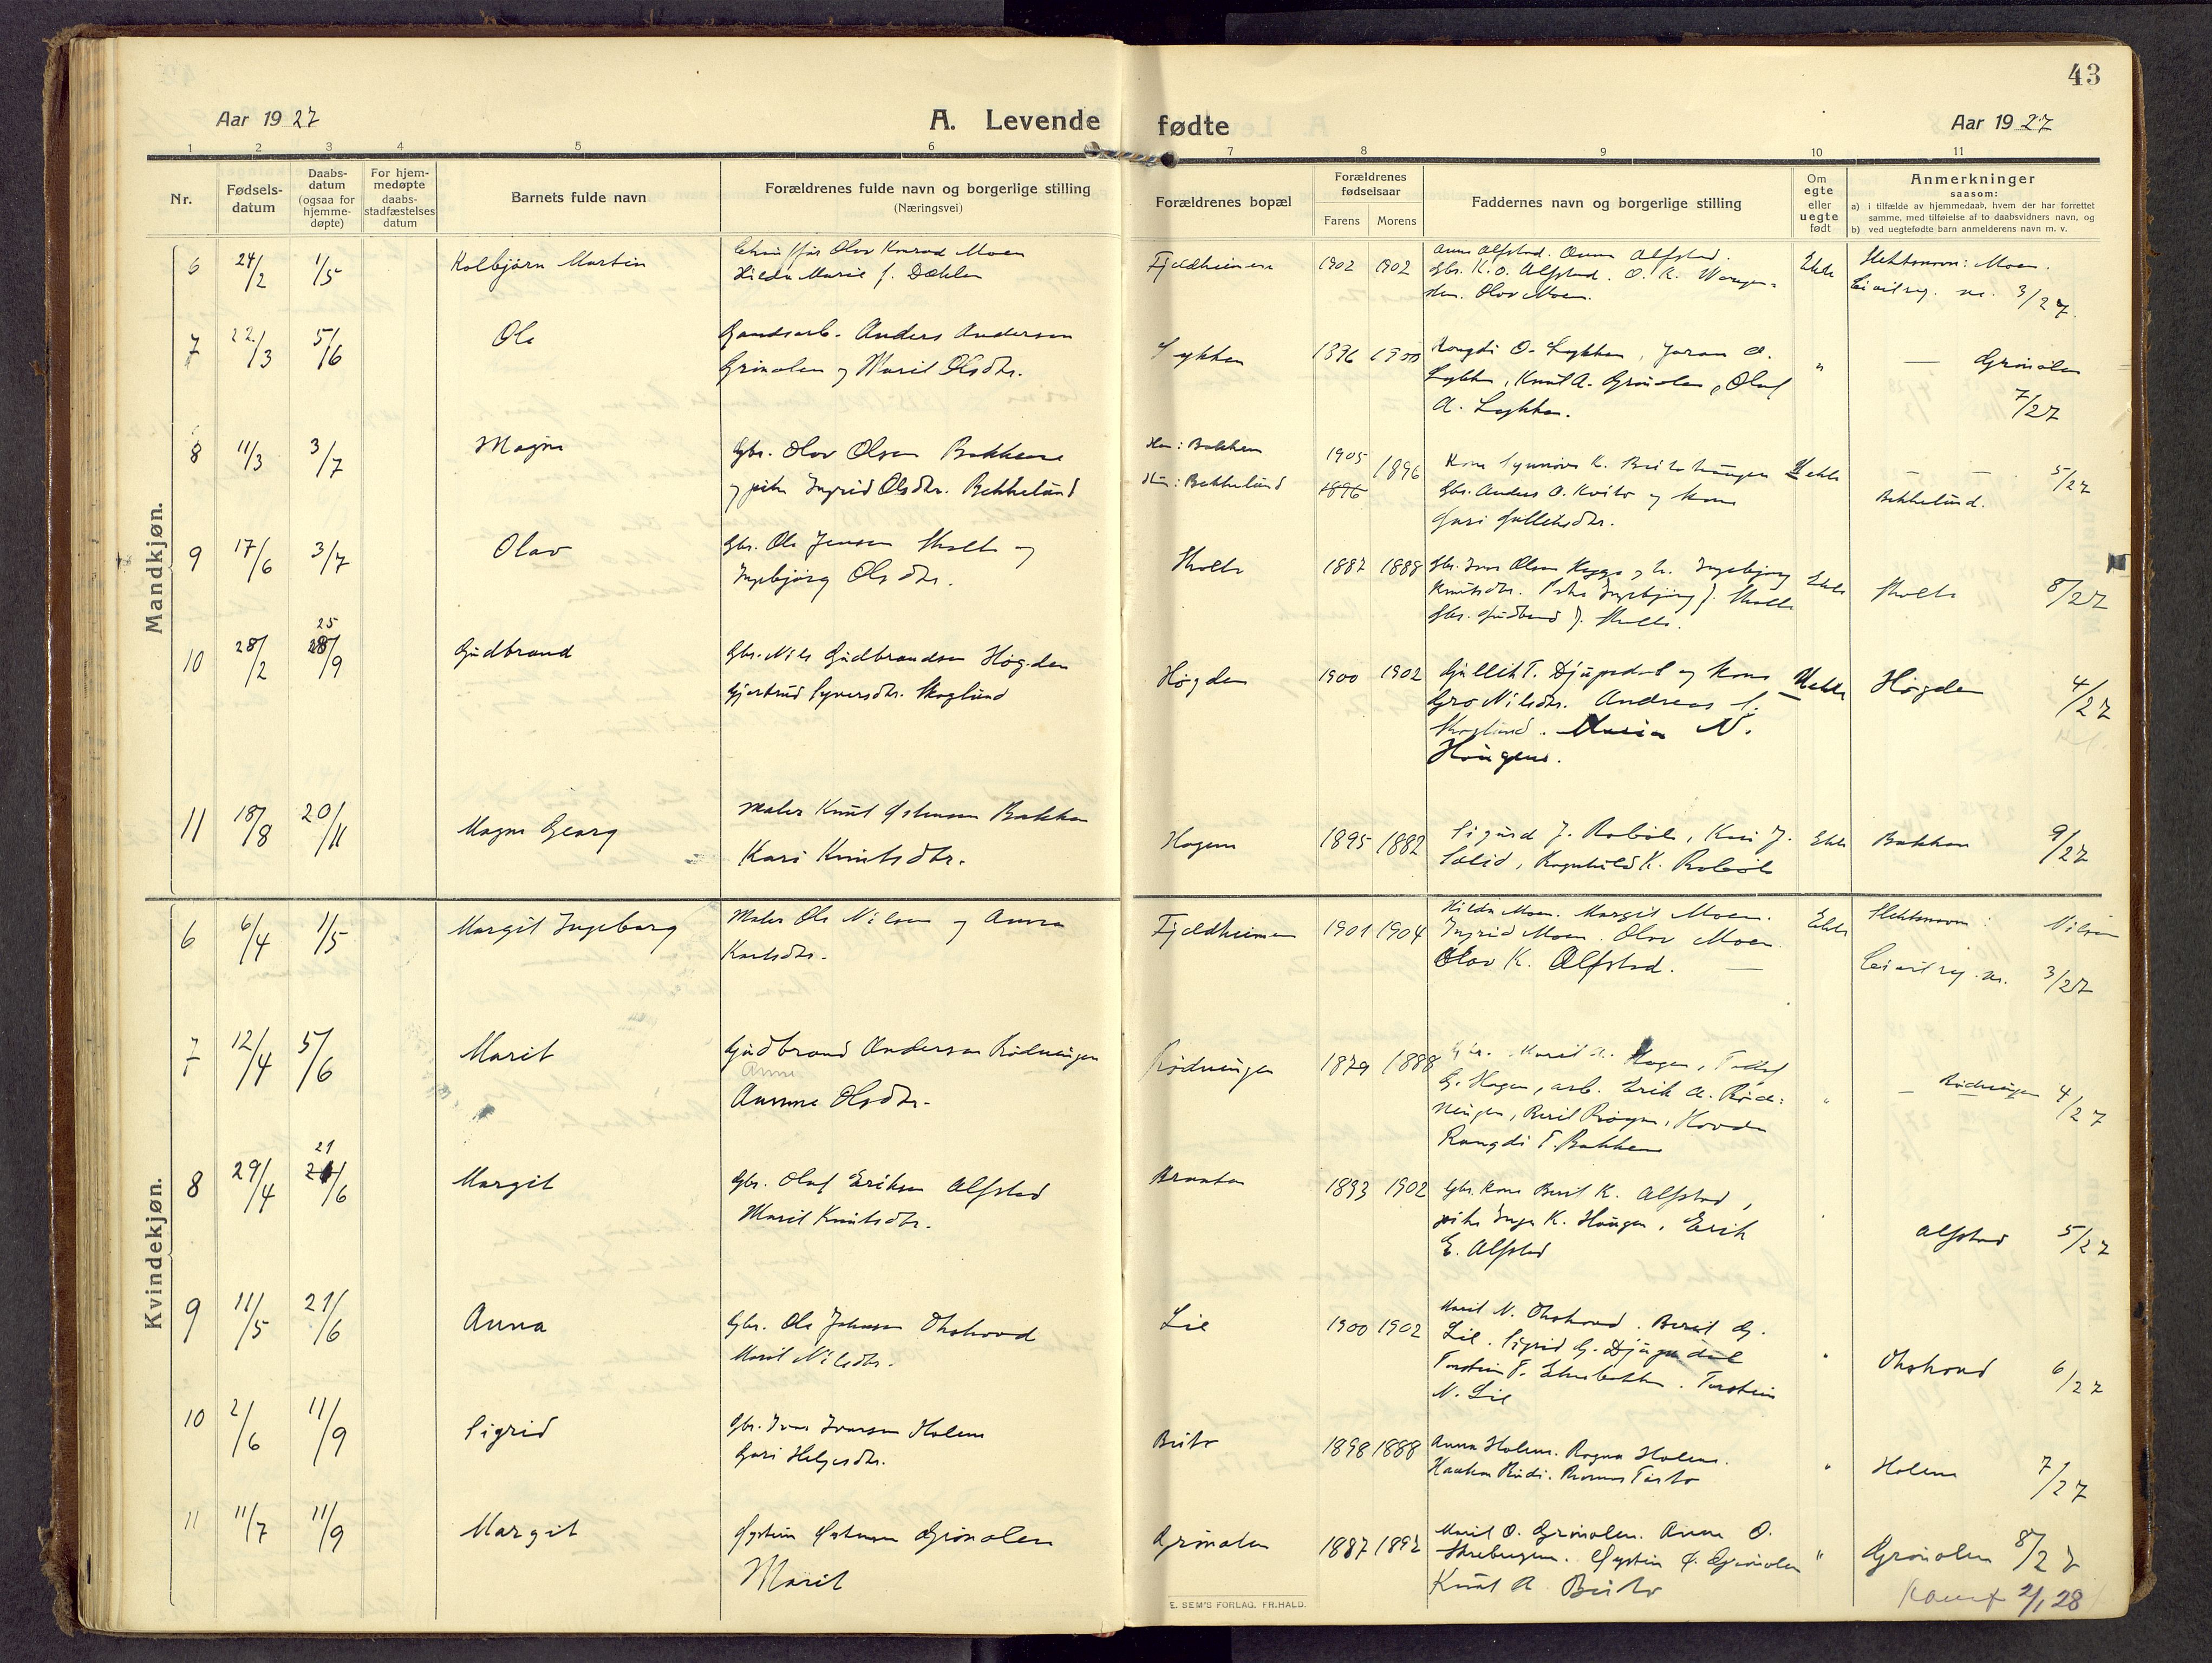 43
Aar 1927
A. Levende fødte
Aar 1927
1 2 3 4 5 6 7 8 9 10 11
Nr.
Fødsels-
datum
Daabs-
datum
(ogsaa for
hjemme-
døpte)
For hjem-
medøpte
daabs-
stadfæstelses
datum
Barnets fulde navn
Forældrenes fulde navn og borgerlige stilling
(Næringsvei)
Forældrenes bopæl
Forældrenes
fødselsaar
Farens Morens
Faddernes navn og borgerlige stilling
Om
egte
eller
uegte
født
Anmerkninger
saasom:
a) i tilfælde av hjemmedaab, hvem der har forrettet
samme, med tilføielse af to daabsvidners navn, og
b) ved uegtefødte barn anmelderens navn m. v.
Mandkjøn.
6 24/2 1/5 Kolbjørn Martin Olav Konrad Moen
Hilda Marie f. Dæhlen
Fjeldheimen 1902 1902 Anna Alfstad.
Gbr. K. O. Alfstad. O. K.
Olov Moen.
Ekte Slektsnavn: Moen.
Civilreg. nr. 3/27
7 22/3 5/6 Ole Anders Andersen
Grinolen og Marit Olsdtr.
Lykken 1896 1900 Rangdi O. Lykken,
Lykken, Knut A. Grönolen, Olaf
A. Lykken.
" — Grönolen
7/27
8 11/3 3/7 Magne Gbr. Olov Olsen Bakkene
og pike Ingrid Olsdtr. Bekkelund
Han: Bakken
Hun: Bekkelund
1905 1896
1896
Kone Synnöve K.
Gbr. Anders O. Kvito og kone
Guri
Uekte — — 5/27
Bekkelund.
9 17/6 3/7 Olav Gbr. Ole Jensen Skolt og
Ingebjörg Olsdtr.
1887 1888 Gbr. Iver Olsen
Knutsdtr. Pike Ingebjörg J.
Gbr. Gudbrand J.
Ekte 8/27
10 28/2 25 28/9 Gudbrand Gbr. Nils Gudbrandsen Högden
Gjertrud Syversdtr. Skoglund
Högden 1900 1902 Gullik T. Djupedal og kone
Gro Nilsdtr. Andreas S.
Skoglund. Maria N.
Haugen.
Uekte Högden 4/27
11 18/8 20/11 Magne Georg Maler Knut Østensen Bakken
Kari Knutsdtr.
Hagene 1895 1882 Sigurd J. Robøle, Kari J.
Solid, Ragnhild K. Robøle
Ekte Bakken 9/27
Kvindekjøn.
6 6/4 1/5 Margit Ingeborg Maler Ole Nilsen og Anna
Knutsdtr.
Fjeldheimen 1901 1904 Hilda Moen. Margit Moen.
Ingrid Moen. Olov Moen.
Olov K. Alfstad. —
Ekte Slektsnavn: Nilsen
Civilreg. nr. 3/27
7 12/4 5/6 Marit Gudbrand Andersen Rødningen
Anne
Olsdtr.
Rødningen 1879 1888 Marit A. Hagen,
G. Hagen, arb. Erik A. Rød-
ningen, Berit
Rangdi T. Bakken
" — Rødningen 4/27
8 29/4 21 21/6 Margit Gbr. Olaf Eriksen Alfstad
Marit Knutsdtr.
Braaten 1893 1902 Gbr. kone Berit K. Alfstad,
pike Inga K. Haugen, Erik
E. Alfstad
Alfstad 5/27
9 11/5 21/6 Anna Gbr. Ole Johnsen Okshovd
Marit Nilsdtr.
Lie 1900 1902 Marit N. Okshovd. Berit G.
Lie. Sigrid G. Djupedal
Torstein T. Torstein
N. Lie
" Okshovd 6/27
10 2/6 11/9 Sigrid Gbr. Iver Iversen Holene
Guri Helgesdtr.
Beito 1898 1888 Anna Holene. Ragna Holene.
Haakon Rudi.
" Holene 7/27
11 11/7 11/9 Margit Øystein Østensen Grönolen
Marit
Grönolen 1887 1892 Marit O. Grönolen. Anne O.
Øystein Ø. Grönolen
Knut A. Beito
" Grönolen 8/27
2/1 28
E. SEM'S FORLAG. FR.HALD.